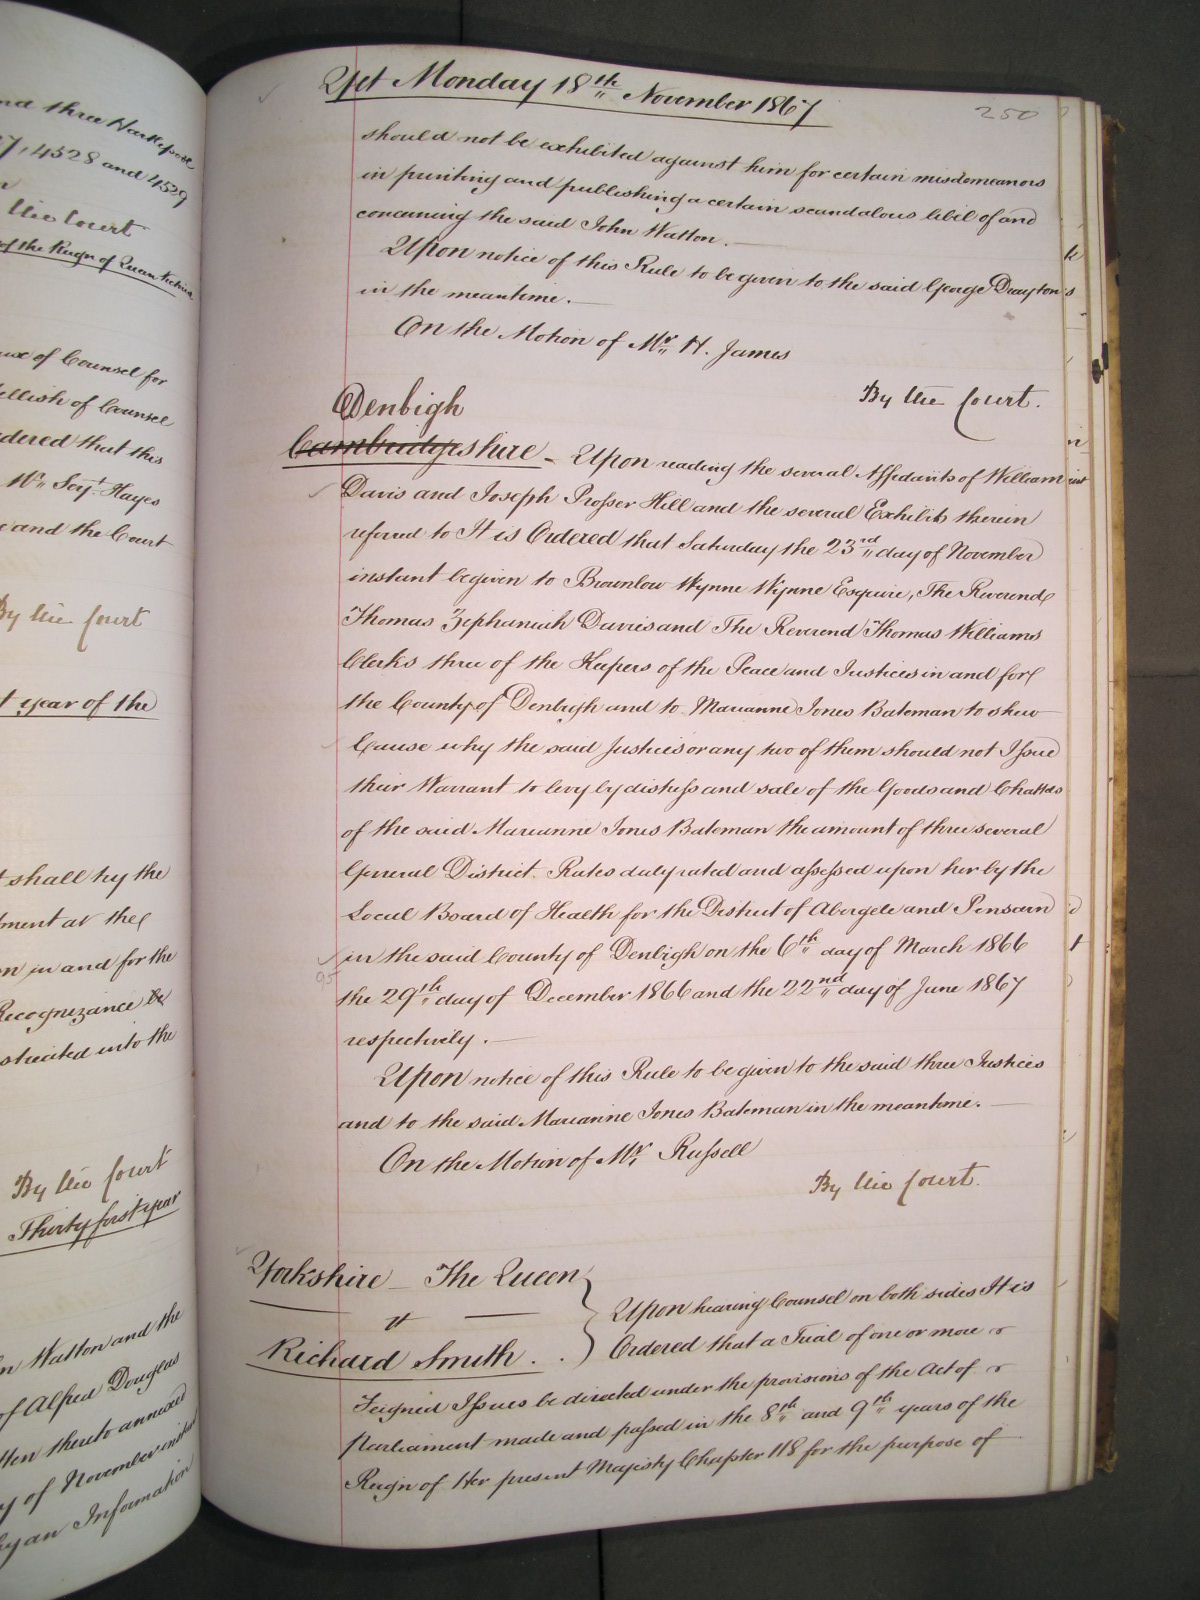 nd three
27, 4528 and 4529
the Court
of the Reign of Queen Victoria
of Counsel for
ellish of Counsel
dered that this
Mr Serjt. Hayes
and the Court
By the Court
t year of the
t shall try the
ment at the
on in and for the
Recognizance be
streated into the
By the Court
Thirty first year
n Watton and the
of Alfred Douglas
tten thereto annexed
y of November instant
by an Information
Yet Monday 18th November 1867
250
should not be exhibited against him for certain misdemeanors
in printing and publishing a certain scandalous libel of and
concerning the said John Watton.
Upon notice of this Rule to be given to the said George Drayton
in the meantime.
On the Motion of Mr H. James
By the Court.
Denbigh
Cambridgeshire - Upon reading the several Affidavits of William
Davis and Joseph Prosser Hill and the several Exhibits therein
referred to It is Ordered that Saturday the 23rd day of November
instant be given to Brownlow Wynne Wynne Esquire, The Reverend
Thomas Zephaniah Davies and The Reverend Thomas Williams
Clerks three of the Keepers of the Peace and Justices in and for
the County of Denbigh and to Marianne Jones Bateman to shew
Cause why the said Justices or any two of them should not Issue
their Warrant to levy by distress and sale of the Goods and Chattels
of the said Marianne Jones Bateman the amount of three several
General District Rates duly rated and assessed upon her by the
Local Board of Health for the District of Abergele and Pensarn
in the said County of Denbigh on the 6th day of March 1866
95
the 29th day of December 1866 and the 22nd day of June 1867
respectively.
Upon notice of this Rule to be given to the said three Justices
and to the said Marianne Jones Bateman in the meantime.
On the Motion of Mr Russell
By the Court.
Yorkshire - The Queen
v
Richard Smith . .
Upon hearing Counsel on both sides It is
Ordered that a Trial of one or more
Feigned Issues be directed under the provisions of the Act of
Parliament made and passed in the 8th and 9th years of the
Reign of Her present Majesty Chapter 118 for the purpose of